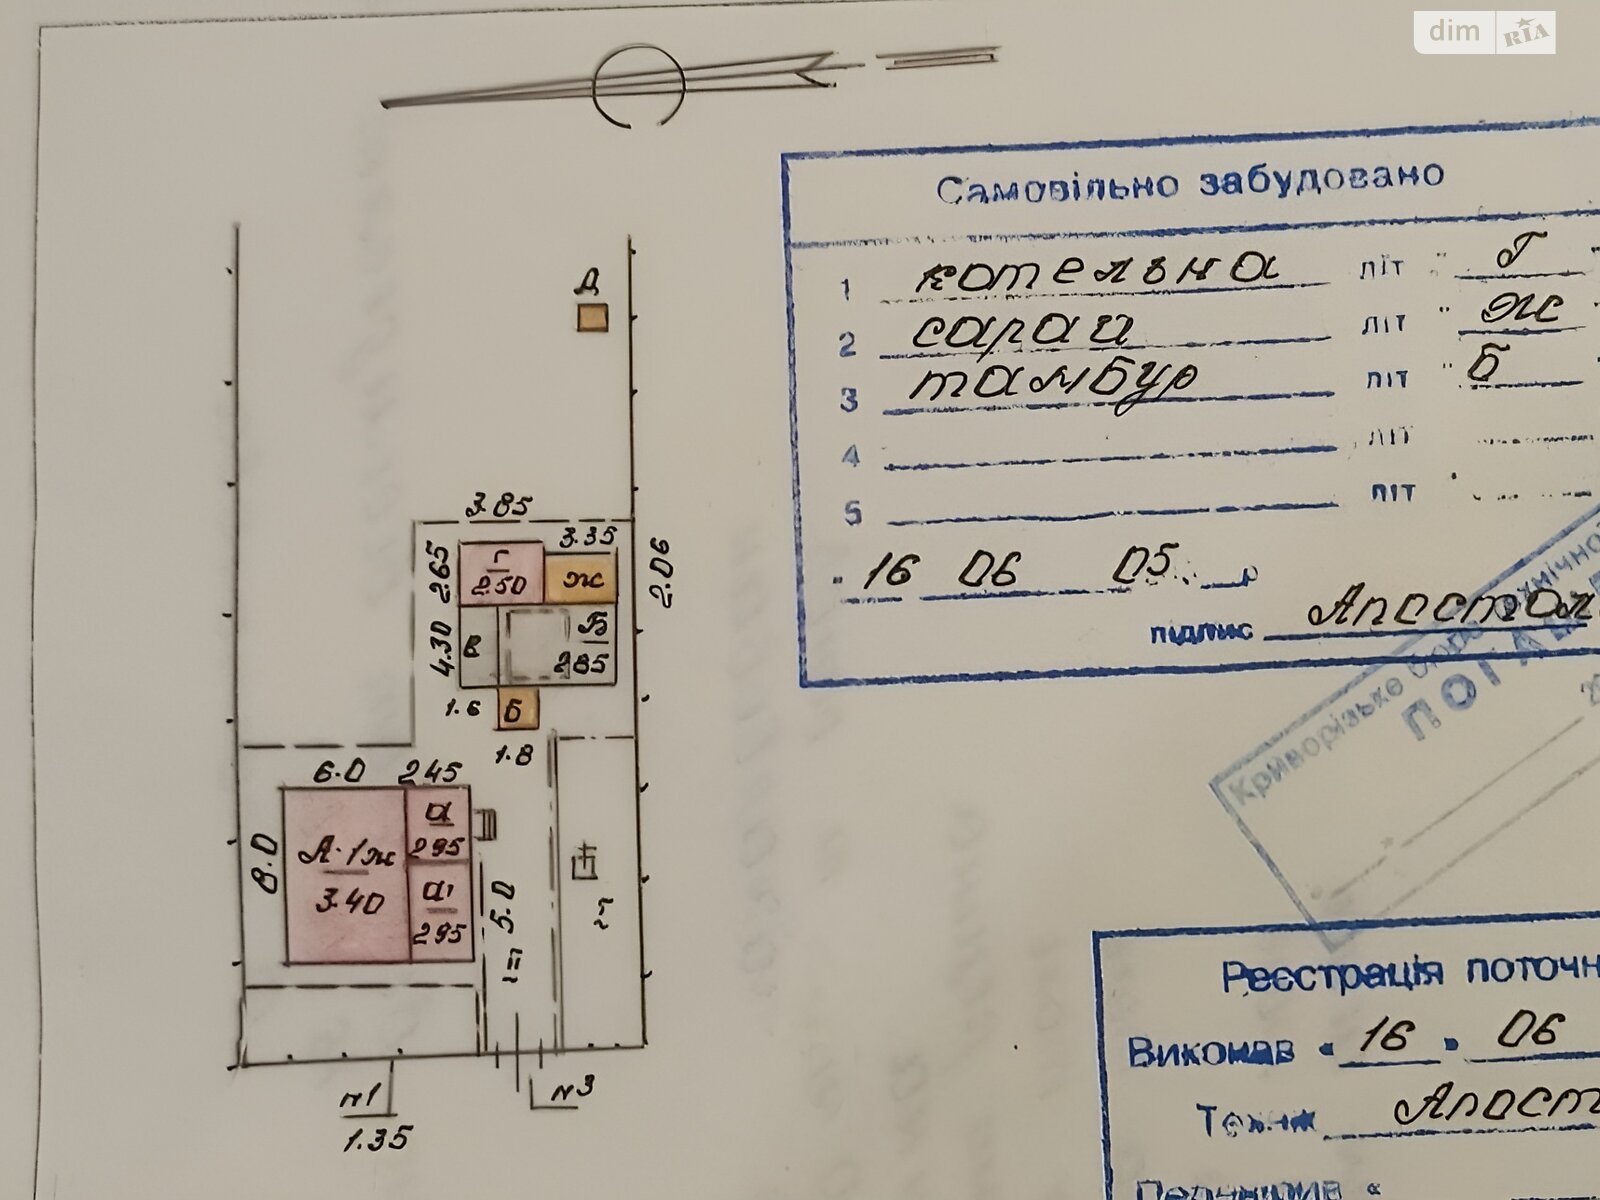 dim RIA
Самовільно забудовано
1 котельна літ "Г"
2 сарай літ "Ж
3 тамбур літ "Б
4 літ
5 літ
16 06 05 р
підпис Апостол
Криворізьке бюро технічно
ПОГА
Реєстрація поточн
Виконав "16" 06
Технік Апост
Д
3.85
3.35
2.65
Г
2.50
Ж
2.06
4.30
В
Б
2.85
1.6
Б
1.8
6.0
2.45
8.0
А-1ж
3.40
а
2.95
а'
2.95
5.0
№1
1.35
№3